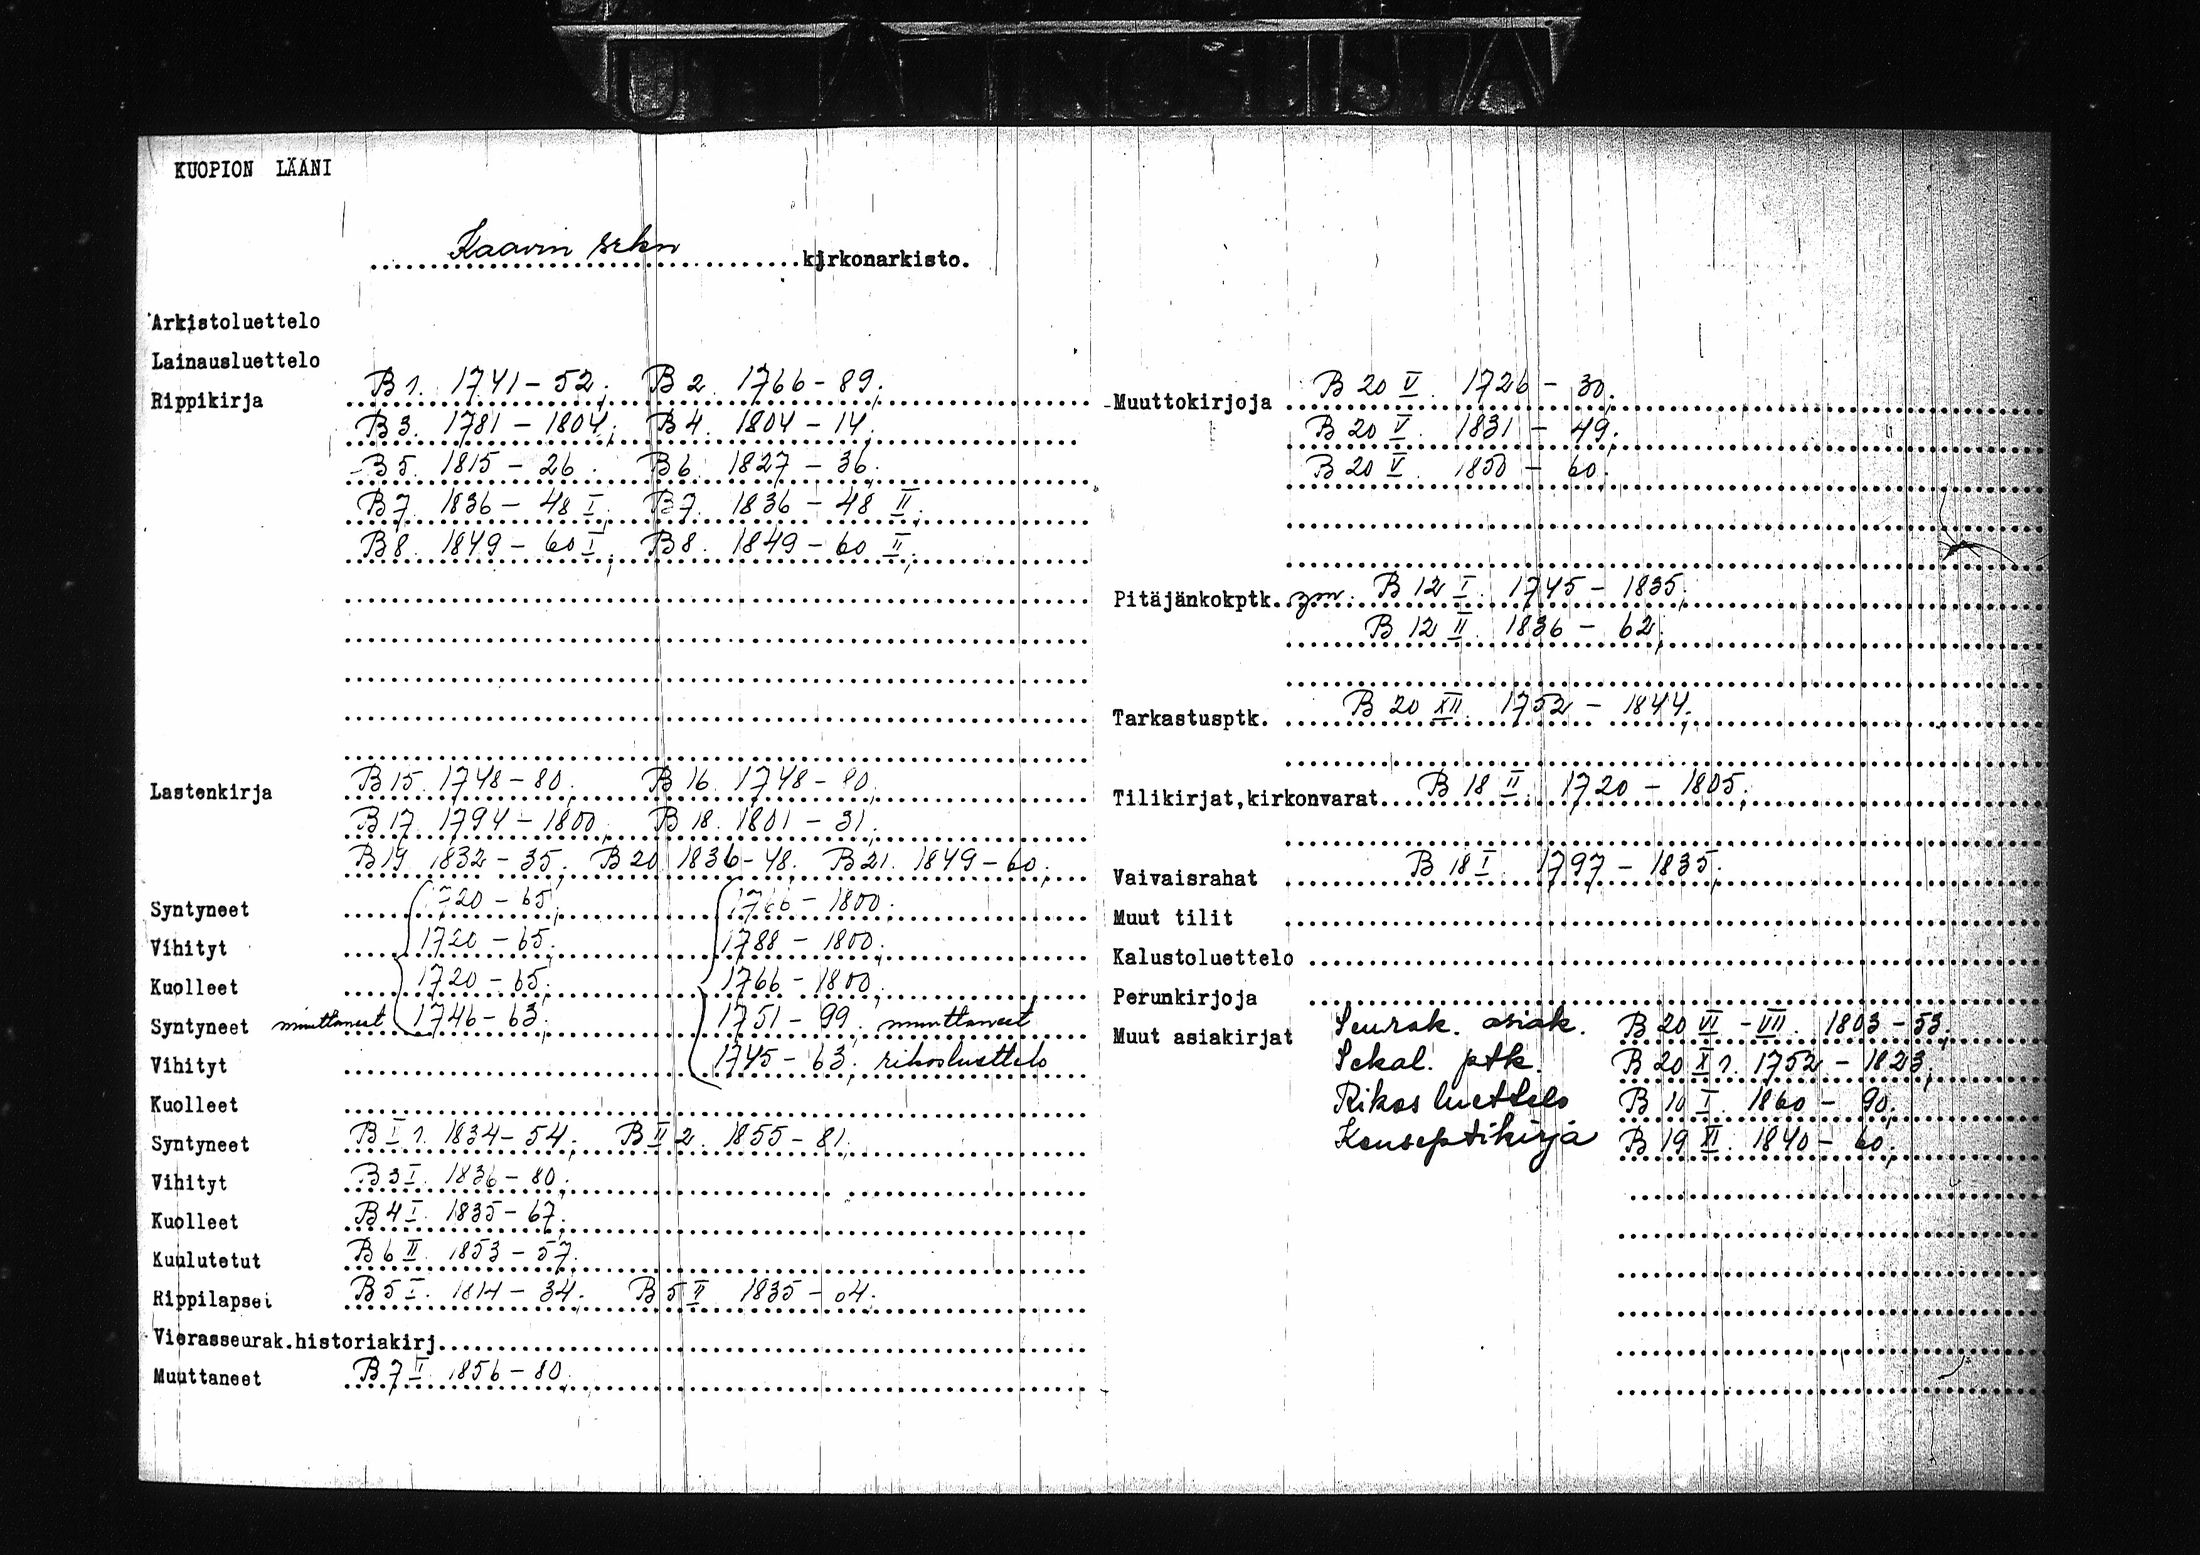 KUOPION LÄÄNI
Kaavin srkn kirkonarkisto.
Arkistoluettelo
Lainausluettelo
Rippikirja B 1. 1741 – 52; B 2. 1766 – 89;
B 3. 1781 – 1804; B 4. 1804 – 14;
B 5. 1815 – 26. B 6. 1827 – 36;
B 7. 1836 – 48 I; B 7. 1836 – 48 II;
B 8. 1849 – 60 I; B 8. 1849 – 60 II;
Lastenkirja B 15. 1748 – 80; B 16. 1748 – 80;
B 17. 1794 – 1800; B 18. 1801 – 31;
B 19. 1832 – 35; B 20. 1836 – 48. B 21. 1849 – 60;
Syntyneet 1720 – 65; 1766 – 1800;
Vihityt 1720 – 65; 1788 – 1800;
Kuolleet 1720 – 65; 1766 – 1800;
Syntyneet muuttaneet 1746 – 63; 1751 – 99; muuttaneet
Vihityt 1745 – 63; rikosluettelo
Kuolleet
Syntyneet B I 1. 1834 – 54; B II 2. 1855 – 81.
Vihityt B 3 I. 1836 – 80;
Kuolleet B 4 I. 1835 – 67;
Kuulutetut B 6 II. 1853 – 57.
Rippilapsei B 5 I. 1814 – 34; B 5 II. 1835 – 64;
Vierasseurak.historiakirj.
Muuttaneet B 7 II. 1856 – 80.
Muuttokirjoja B 20 V. 1726 – 30;
B 20 V. 1831 – 49;
B 20 V. 1850 – 60;
Pitäjänkokptk. ym. B 12 I. 1745 – 1835;
B 12 II. 1836 – 62;
Tarkastusptk. B 20 XII. 1752 – 1844;
Tilikirjat,kirkonvarat B 18 II. 1720 – 1805;
Vaivaisrahat B 18 I. 1797 – 1835;
Muut tilit
Kalustoluettelo
Perunkirjoja
Muut asiakirjat Seurak. asiak. B 20 VI – VII. 1803 – 53;
Sekal. ptk. B 20 X 1. 1752 – 1823;
Rikosluettelo B 10 I. 1860 – 90;
Konseptikirja B 19 XI. 1840 – 60;